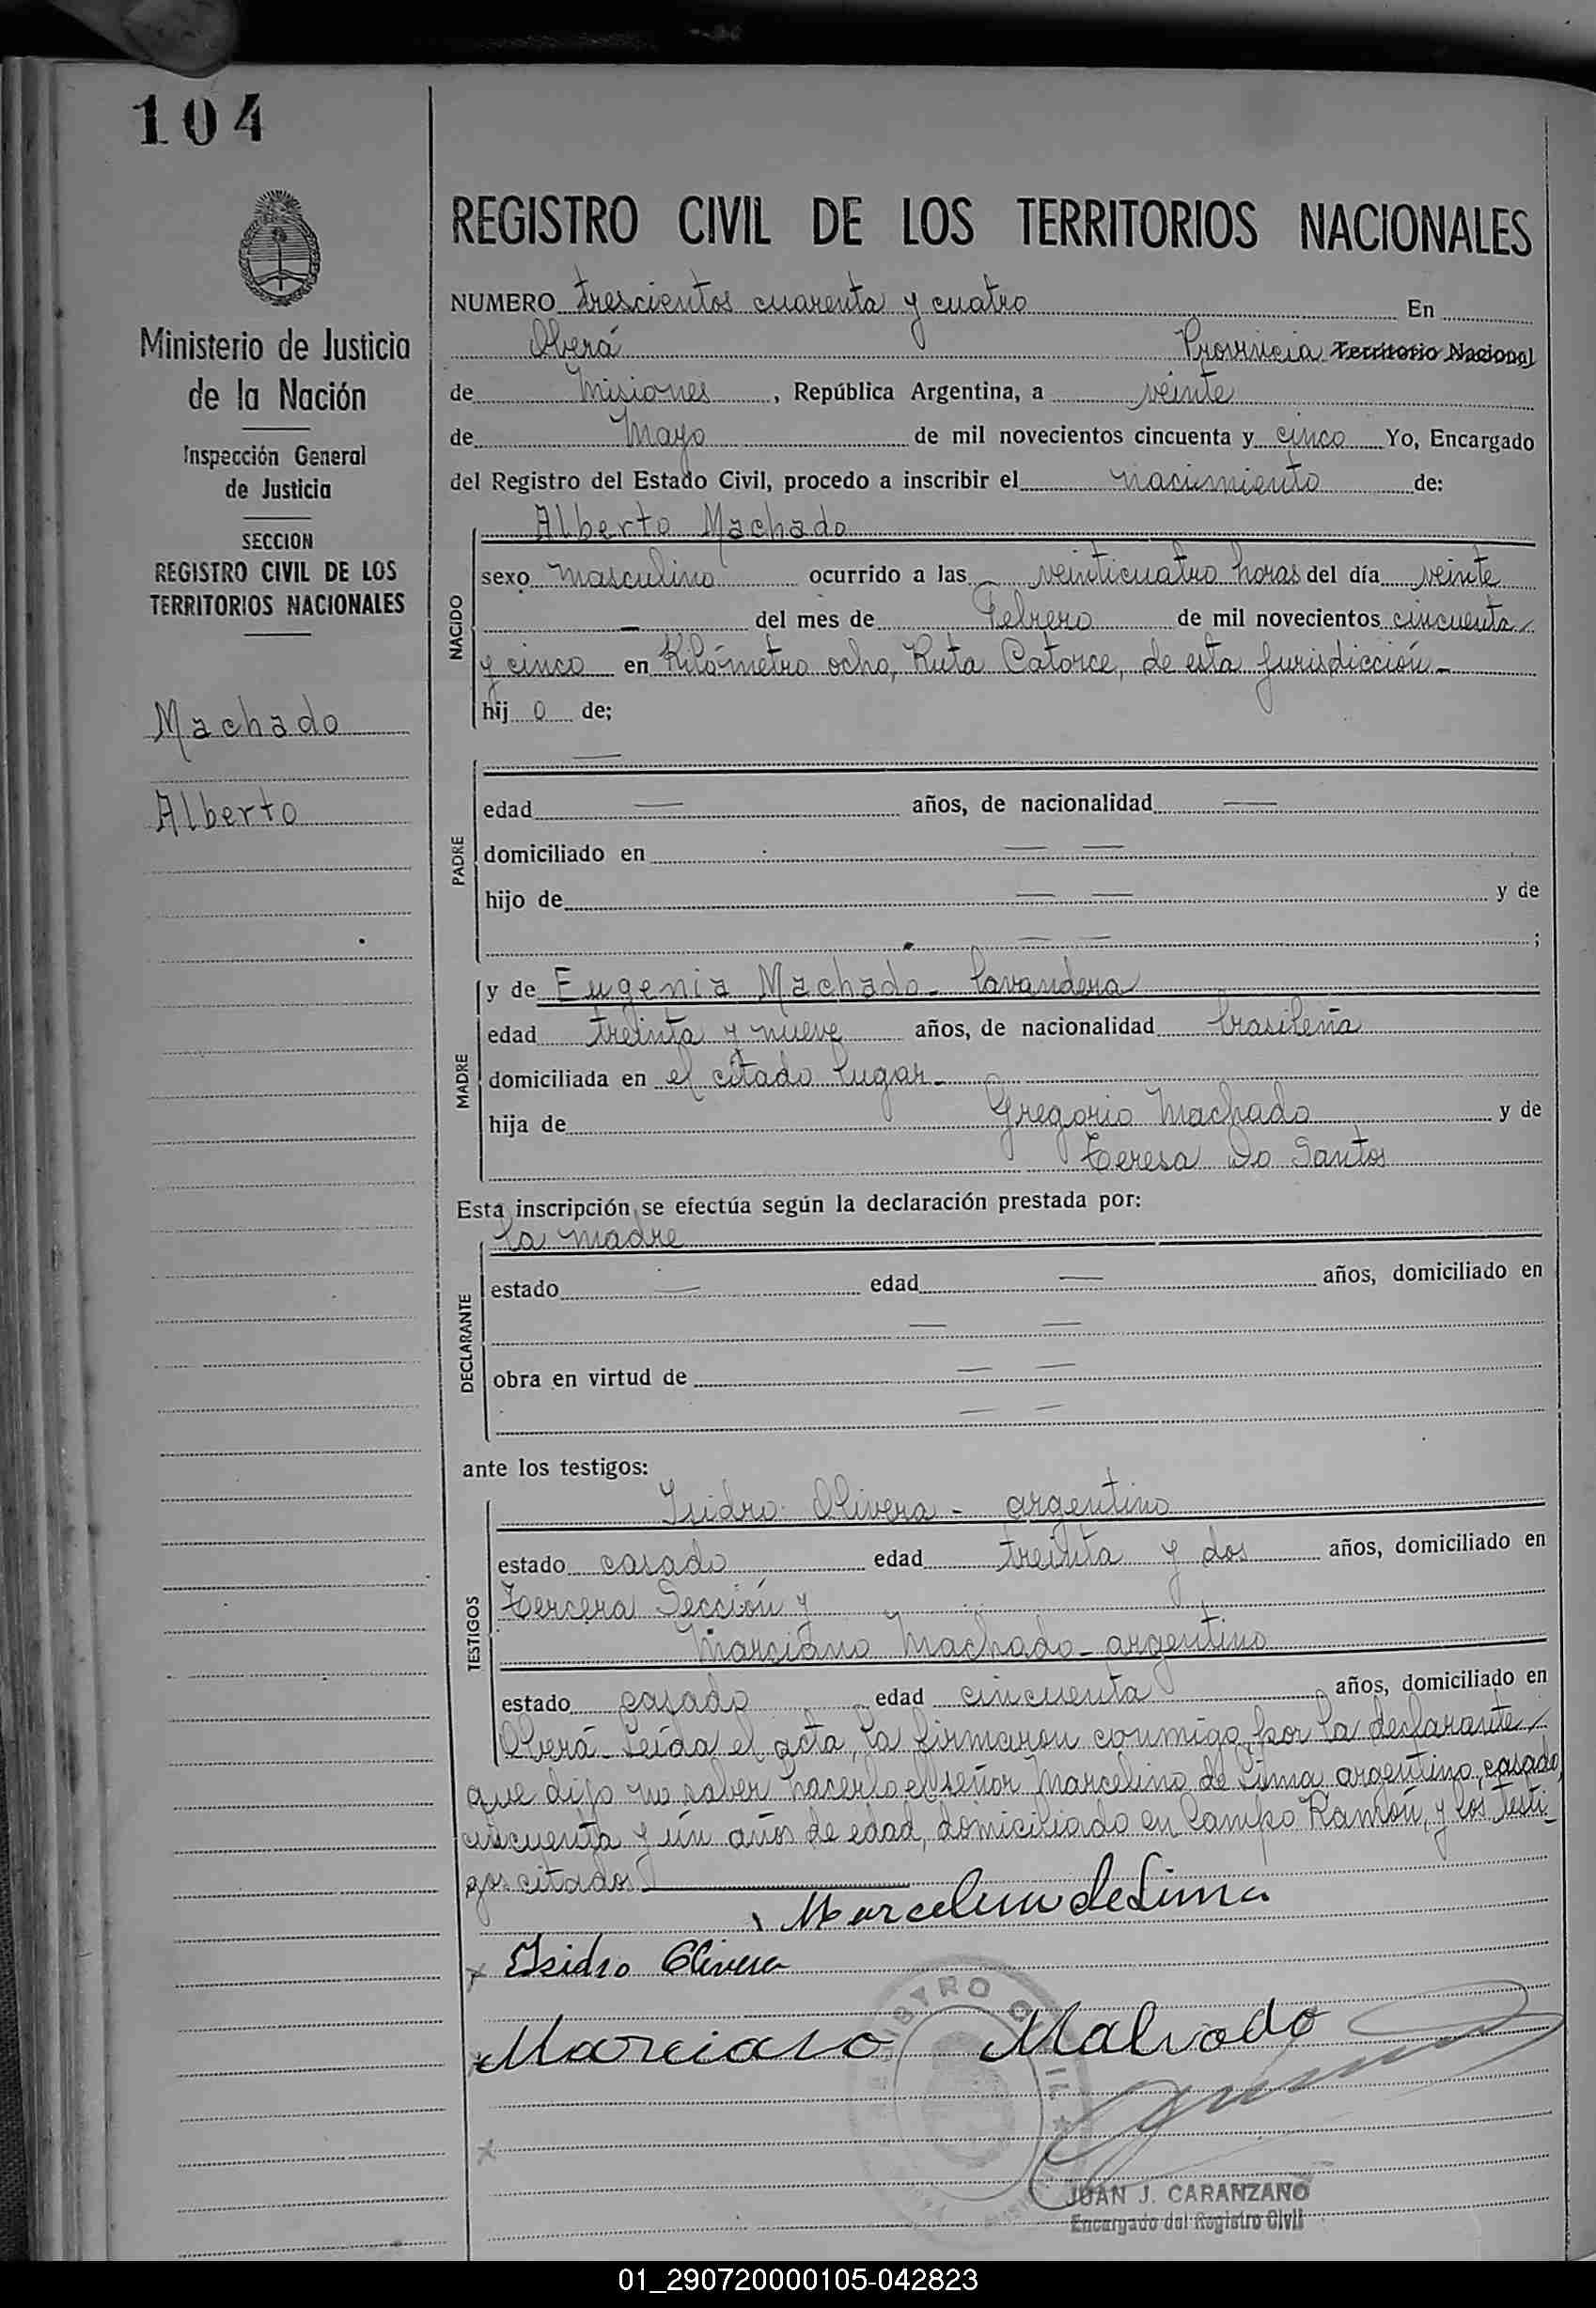 104
Ministerio de Justicia
de la Nación
Inspección General
de Justicia
SECCION
REGISTRO CIVIL DE LOS
TERRITORIOS NACIONALES
Machado
Alberto
REGISTRO CIVIL DE LOS TERRITORIOS NACIONALES
NUMERO trescientos cuarenta y cuatro En
Oberá Provincia Territorio Nacional
de Misiones, República Argentina, a veinte
de Mayo de mil novecientos cincuenta y cinco Yo, Encargado
del Registro del Estado Civil, procedo a inscribir el nacimiento de:
NACIDO
Alberto Machado
sexo masculino ocurrido a las veinticuatro horas del día veinte
— del mes de Febrero de mil novecientos cincuenta
y cinco en Kilómetro ocho, Ruta Catorce, de esta jurisdicción-
hij o de;
PADRE
—
edad — años, de nacionalidad —
domiciliado en — —
hijo de — — y de
— — ;
MADRE
y de Eugenia Machado- lavandera
edad treinta y nueve años, de nacionalidad brasileña
domiciliada en el citado lugar-
hija de Gregorio Machado y de
Teresa Do Santos
Esta inscripción se efectúa según la declaración prestada por:
DECLARANTE
la madre
estado — edad — años, domiciliado en
— —
obra en virtud de — —
— —
ante los testigos:
TESTIGOS
Isidro Olivera - argentino
estado casado edad treinta y dos años, domiciliado en
Tercera Sección y
Marciano Machado - argentino
estado casado edad cincuenta años, domiciliado en
Oberá- Leída el acta, la firmaron conmigo, por la declarante
que dijo no saber hacerlo el señor Marcelino de Lima argentino, casado,
cincuenta y un años de edad, domiciliado en Campo Ramón, y los testi-
gos citados
Marcelino de Lima
x Isidro Olivera
x Marciano Malvado
x
JUAN J. CARANZANO
Encargado del Registro Civil
01_290720000105-042823